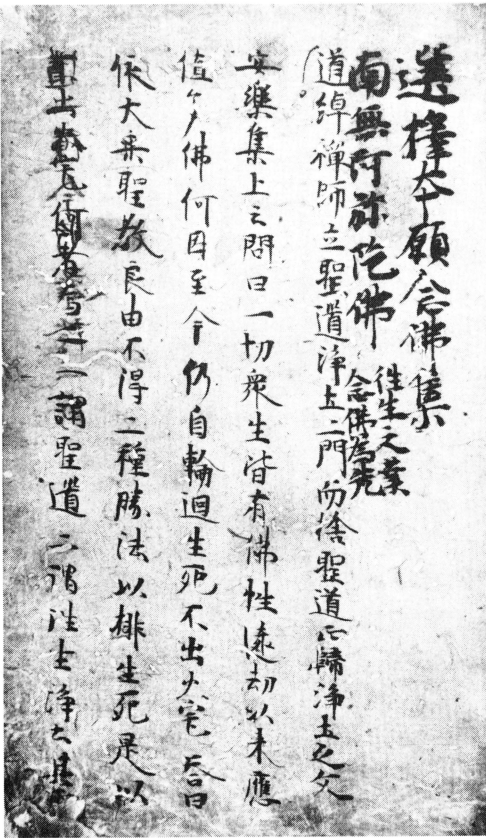 選擇本願念佛集
南無阿弥陀佛 往生之業
念佛為先
道綽禪師立聖道淨土二門而捨聖道正歸淨土之文
安樂集上云問曰一切衆生皆有佛性遠劫以來應
值多佛何因至今仍自輪迴生死不出火宅答曰
依大乘聖教良由不得二種勝法以排生死是以
何者為二一謂聖道二謂往生淨土